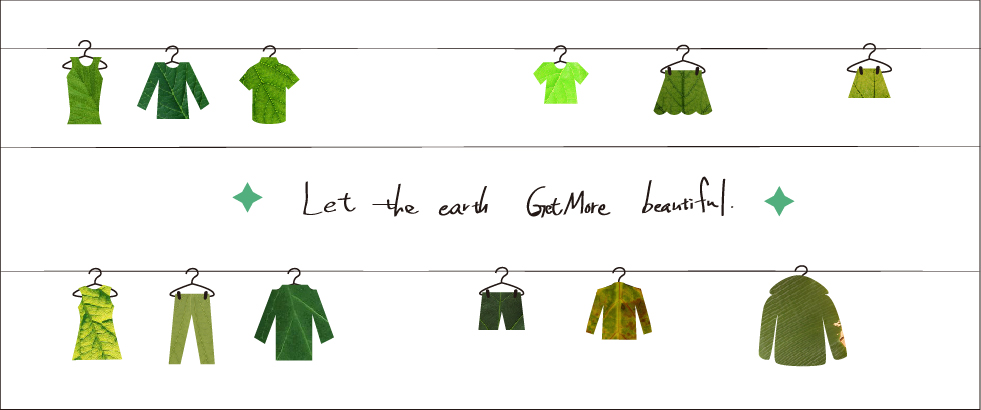 Let the earth Get More beautiful.